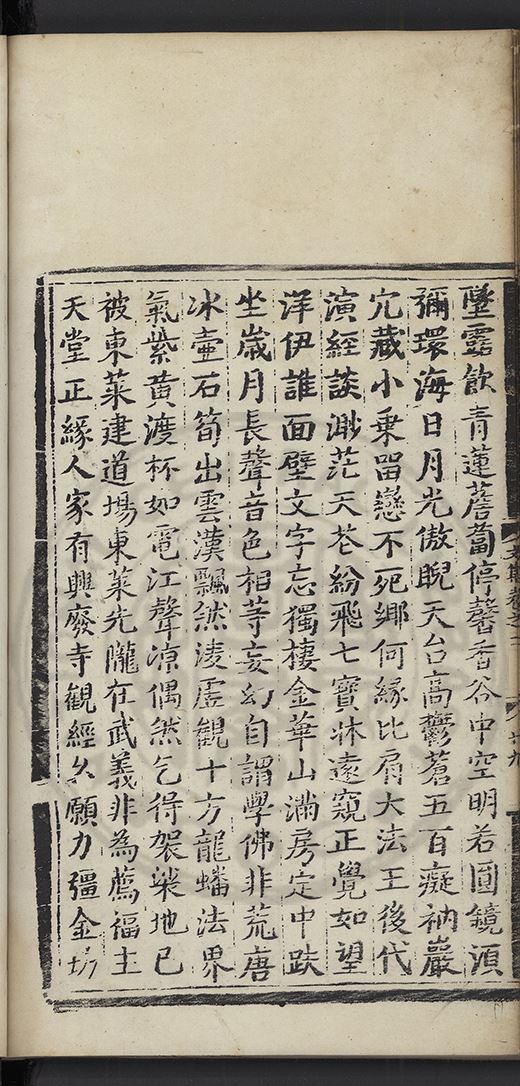 墜露飲青蓮薝蔔停馨香谷中空明若圓鏡湏
彌環海日月光傲睨天台高鬱蒼五百癡衲巖
穴藏小乗留戀不死鄉何緣比肩大法王後代
演經談渺茫天花紛飛七寶牀遠窺正覺如望
洋伊誰面壁文字忘獨棲金華山滿房定中趺
坐歲月長聲音色相等妄幻自謂學佛非荒唐
冰壷石筍出雲漢飄然淩虛觀十方龍蟠法界
氣紫黃渡杯如電江聲凉偶然乞得袈裟地已
被東萊建道場東萊先隴在武義非為薦福主
天堂正緣人家有興廢寺觀經久願力彊金坊